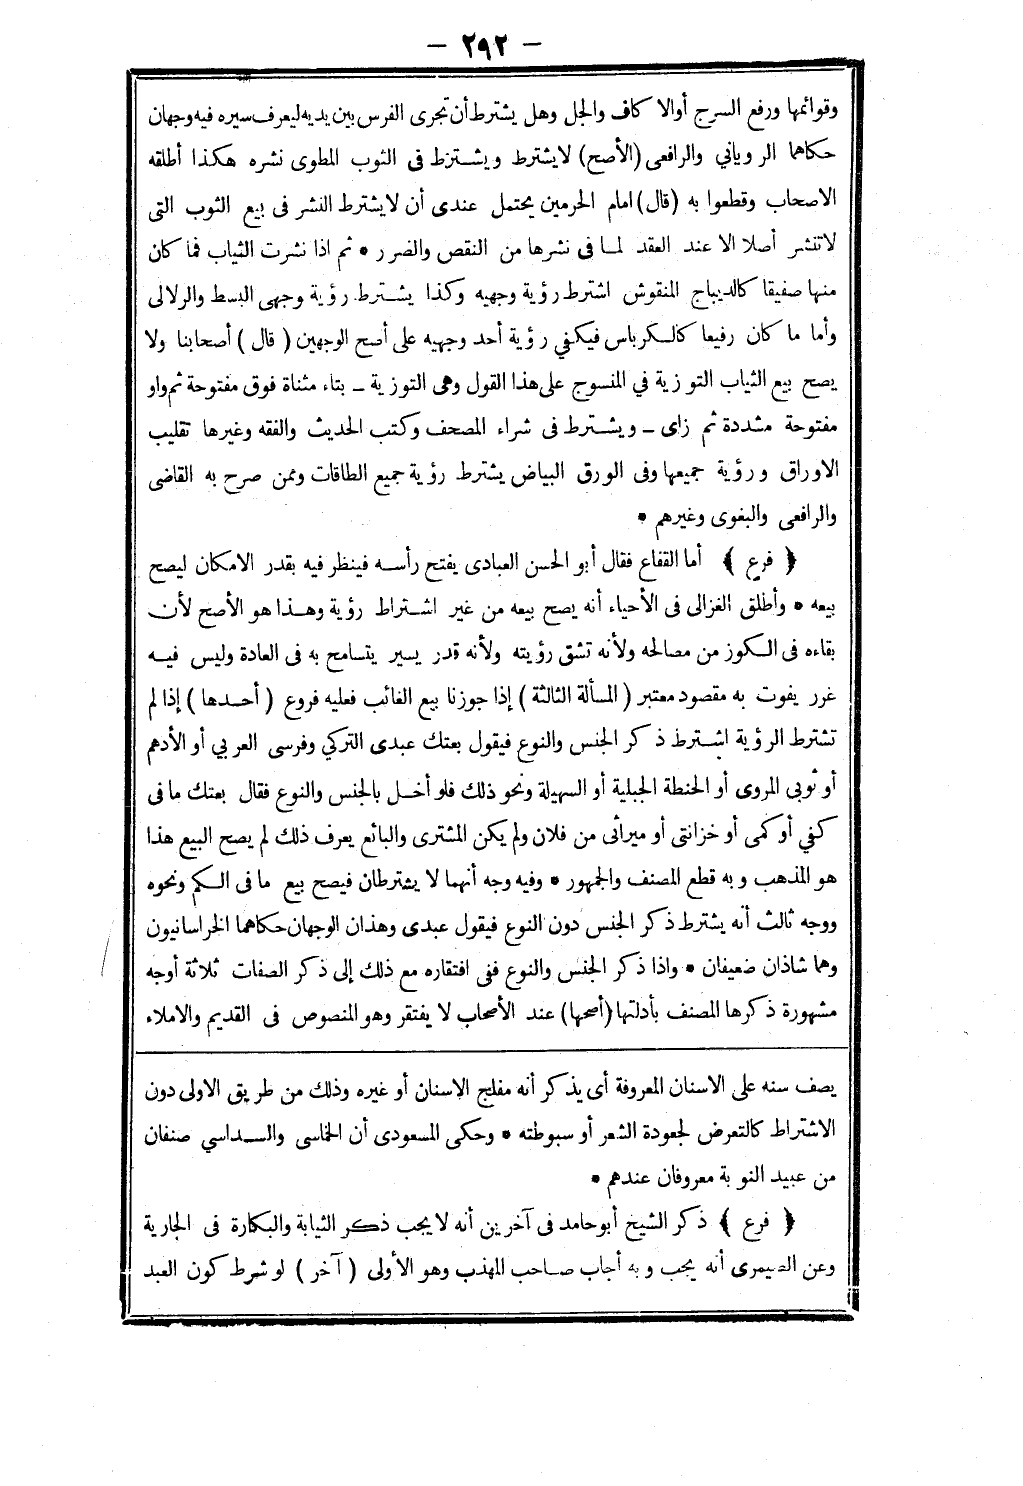 — ٢٩٢ —
وقوائمها ورفع السرج أوالا كاف والجل وهل يشترط أن تجرى الفرس بين يديه ليعرف سيره فيه وجهان
حكاهما الر وياني والرافعى (الأصح) لا يشترط ويشترط فى الثوب المطوى نشره هكذا أطلقه
الاصحاب وقطعوا به (قال) امام الحرمين يحتمل عندى أن لا يشترط النشر فى بيع الثوب التى
لاتنشر أصلا الا عند العقد لما فى نشرها من النقص والضرر * ثم اذا نشرت الثياب فما كان
منها صفيقا كالديباج المنقوش اشترط رؤية وجهيه وكذا يشترط رؤية وجهى البسط والزلالى
وأما ما كان رفيعا كالكرباس فيكفي رؤية أحد وجهيه على أصح الوجهين ( قال ) أصحابنا ولا
يصح بيع الثياب التوزية في المنسوج على هذا القول وهى التوزية ـ بتاء مثناة فوق مفتوحة ثم واو
مفتوحة مشددة ثم زاى ـ ويشترط فى شراء المصحف وكتب الحديث والفقه وغيرها تقليب
الاوراق ورؤية جميعها وفى الورق البياض يشترط رؤية جميع الطاقات وممن صرح به القاضى
والرافعى والبغوى وغيرهم *
﴿ فرع ﴾ أما القفاع فقال أبو الحسن العبادى يفتح رأسه فينظر فيه بقدر الامكان ليصح
بيعه * وأطلق الغزالى فى الأحياء أنه يصح بيعه من غير اشتراط رؤية وهذا هو الأصح لأن
بقاءه فى الكوز من مصالحه ولأنه تشق رؤيته ولأنه قدر يسير يتسامح به فى العادة وليس فيه
غرر يفوت به مقصود معتبر ( المسألة الثالثة ) إذا جوزنا بيع الغائب فعليه فروع ( أحدها ) إذا لم
تشترط الرؤية اشترط ذكر الجنس والنوع فيقول بعتك عبدى التركي وفرسى العربي أو الأدهم
أو ثوبى المروى أو الحنطة الجبلية أو السهيلة ونحو ذلك فلو أخل بالجنس والنوع فقال بعتك ما فى
كفي أو كمى أو خزانتى أو ميراثى من فلان ولم يكن المشترى والبائع يعرف ذلك لم يصح البيع هذا
هو المذهب وبه قطع المصنف والجمهور * وفيه وجه أنهما لا يشترطان فيصح بيع ما فى الكم ونحوه
ووجه ثالث أنه يشترط ذكر الجنس دون النوع فيقول عبدى وهذان الوجهان حكاهما الخراسانيون
وهما شاذان ضعيفان * واذا ذكر الجنس والنوع ففى افتقاره مع ذلك إلى ذكر الصفات ثلاثة أوجه
مشهورة ذكرها المصنف بأدلتها (أصحها) عند الأصحاب لا يفتقر وهو المنصوص فى القديم والاملاء
يصف سنه على الاسنان المعروفة أى يذكر أنه مفلج الاسنان أو غيره وذلك من طريق الاولى دون
الاشتراط كالتعرض لجعودة الشعر أو سبوطته * وحكى المسعودى أن الخماسى والسداسي صنفان
من عبيد النوبة معروفان عندهم *
﴿ فرع ﴾ ذكر الشيخ أبو حامد فى آخرين أنه لا يجب ذكر الثيابة والبكارة فى الجارية
وعن الصيمرى أنه يجب وبه أجاب صاحب المهذب وهو الأولى ( آخر ) لو شرط كون العبد